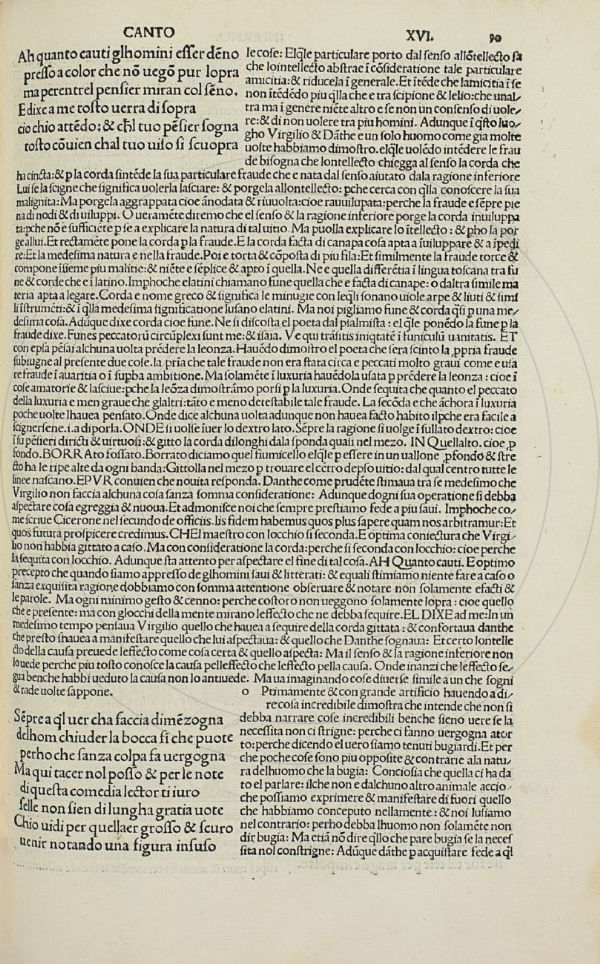 CANTO XVI. 90
Ah quanto cauti glhomini esser dẽno
presso a color che nõ uegõ pur lopra
ma perentrel pensier miran col sẽno.
E dixe a me tosto uerra di sopra
cio chio attẽdo: & cħl tuo pẽsier sogna
tosto cõuien chal tuo uiso si scuopra
le cose: Elqle particulare porto dal senso allõtellecto sa
che lointellecto abstrae ĩ cõsideratione tale particulare
amicitia: & riducela ĩ generale. Et itẽde che lamicitia ĩ se
non itẽdẽdo piu qlla che e tra scipione & lelio: che unal
tra ma ĩ genere niẽte altro e se non un consenso di uole
re: & di non uolere tra piu homini. Adunque ĩ qsto luo
gho Virgilio & Dãthe e un solo huomo come gia molte
uolte habbiamo dimostro. elqle uolẽdo intẽdere le frau
de bisogna che lontellecto chiegga al senso la corda che
ha cincta: & p la corda sintẽde la sua particulare fraude che e nata dal senso aiutato dala ragione inferiore
Lui se la scigne che significa uolerla lasciare: & porgela allontellecto: pche cerca con qlla conoscere la sua
malignita: Ma porgela aggruppata cioe ãnodata & riuuolta: cioe rauuilupata: perche la fraude e sẽpre pie
na di nodi & di uiluppi. O ueramẽte diremo che el senso & la ragione inferiore porge la corda inuiluppa
ta: pche nõ e sufficiẽte p se a explicare la natura di tal uitio. Ma puolla explicare lo itellecto: & pho la por
ge allui. Et rectamẽte pone la corda p la fraude. E la corda facta di canapa cosa apta a iuiluppare & a ĩpedi
re: Et la medesima natura e nella fraude. Poi e torta & cõposta di piu fila: Et similmente la fraude torce &
compone isieme piu malitie: & niẽte e sẽplice & apto ĩ quella. Ne e quella differẽtia ĩ lingua toscana tra fu
ne & corde che e ĩ latino. Imphoche elatini chiamano fune quella che e facta di canape: o daltra simile ma
teria apta a legare. Corda e nome greco & significa le minugie con leqli sonano uiole arpe & liuti & simi
li istrumẽti: & ĩ qlla medesima significatione lusano elatini. Ma noi pigliamo fune & corda qsi p una me
desima cosa. Adũque dixe corda cioe fune. Ne si discosta el poeta dal psalmista: el qle ponẽdo la fune p la
fraude dixe. Funes peccatorũ circũplexi sunt me: & isaia. Ve qui trãsitis iniqtatẽ ĩ funiculũ uanitatis. ET
con epsa pẽsai alchuna uolta prẽdere la leonza. Hauẽdo dimostro el poeta che sera scinto la ppria fraude
subiugne al presente due cose. la pria che tale fraude non era stata circa e peccati molto graui come e usa
re fraude ĩ auaritia o ĩ supba ambitione. Ma solamẽte ĩ luxuria hauẽdola usata p prẽdere la leonza: cioe ĩ
cose amatorie & lasciue: pche la leõza dimostrãmo porsi p la luxuria. Onde sequita che quanto el peccato
della luxuria e men graue che glaltri: tãto e meno detestabile tale fraude. La secõda e che ãchora ĩ luxuria
poche uolte lhauea pensato. Onde dice alchuna uolta adunque non hauea facto habito ilpche era facile a
scignersene. i. a diporla. ONDE si uolse iuer lo dextro lato. Sẽpre la ragione si uolge ĩ sullato dextro: cioe
ĩ su pẽsieri diricti & uirtuosi: & gitto la corda dilonghi dala sponda quali nel mezo. IN Quellalto. cioe. p
fondo. BORRAto fossato. Borrato diciamo quel fiumicello elqle p essere in un uallone pfondo & stre
cto ha le ripe alte da ogni banda: Gittolla nel mezo p trouare el cẽtro depso uitio: dal qual centro tutte le
linee nascano. EPVR conuien che nouita responda. Danthe come prudẽte stimaua tra se medesimo che
Virgilio non faccia alchuna cosa sanza somma consideratione: Adunque dogni sua operatione si debba
aspectare cosa egreggia & nuoua. Et admonisce noi che sempre prestiamo fede a piu saui. Imphoche co
me scriue Cicerone nel secundo de officiis. Iis fidem habemus quos plus sapere quam nos arbitramur: Et
quos futura prospicere credimus. CHEl maestro con locchio si seconda. E optima coniectura che Virgi
lio non habbia gittato a caso. Ma con consideratione la corda: perche si seconda con locchio: cioe perche
la sequita con locchio. Adunque sta attento per aspectare el fine di tal cosa. AH Quanto cauti. E optimo
precepto che quando siamo appresso de glhomini saui & litterati: & equali stimiamo niente fare a caso o
sanza exquisita ragione dobbiamo con somma attentione obseruare & notare non solamente efacti &
le parole. Ma ogni minimo gesto & cenno: perche costoro non ueggono solamente lopra: cioe quello
che e presente: ma con glocchi della mente mirano leffecto che ne debba sequire. EL DIXE ad me: In un
medesimo tempo pensaua Virgilio quello che hauea a sequire della corda gittata: & confortaua danthe
che presto shauea a manifestare quello che lui aspectaua: & quello che Danthe sognaua: Et certo lontelle
cto della causa preuede leffecto come cosa certa & quello aspecta: Ma il senso & la ragione inferiore non
lo uede perche piu tosto conosce la causa pelleffecto che leffecto pella causa. Onde inanzi che leffecto se
gua benche habbi ueduto la causa non lo antiuede. Ma ua imaginando cose diuerse simile a un che sogni
& rade uolte sappone.
Sẽpre a ql uer cha faccia dimẽzogna
delhom chiuder la bocca si che puote
perho che sanza colpa fa uergogna
Ma qui tacer nol posso & per le note
di questa comedia lector ti iuro
selle non sien di lungha gratia uote
Chio uidi per quellaer grosso & scuro
uenir notando una figura insuso
o Ptimamente & con grande artificio hauendo a di
re cosa incredibile dimostra che intende che non si
debba narrare cose incredibili benche sieno uere se la
necessita non ci strigne: perche ci fanno uergogna ator
to: perche dicendo el uero siamo tenuti bugiardi. Et per
che poche cose sono piu opposite & contrarie ala natu
ra delhuomo che la bugia: Conciosia che quella ci ha da
to el parlare: ilche non e dalchuno altro animale accio
che possiamo exprimere & manifestare di fuori quello
che habbiamo conceputo nellamente: & noi lusiamo
nel contrario: perho debba lhuomo non solamẽte non
dir bugia: Ma etiã non dire qllo che pare bugia se la neces
sita nol constrigne: Adũque dãthe p acquistare fede a ql